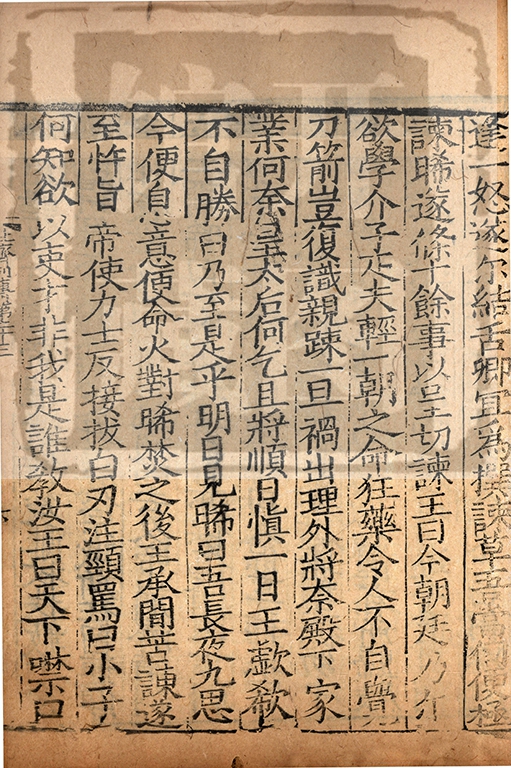 逢一怒遂尒結舌卿宜為撰諫草吾當伺便極
諫晞遂條十餘事以呈切諫王曰今朝廷乃尒
欲學介子疋夫輕一朝之命狂藥令人不自覺
刀箭豈復識親疎一旦禍出理外將奈殿下家
業何奈皇太后何乞且將順日慎一日王歔欷
不自勝曰乃至是乎明日見晞曰吾長夜九思
今便息意便命火對晞焚之後王承間苦諫遂
至忤旨帝使力士反接拔白刃注頸罵曰小子
何知欲以吏才非我是誰教汝王曰天下噤口